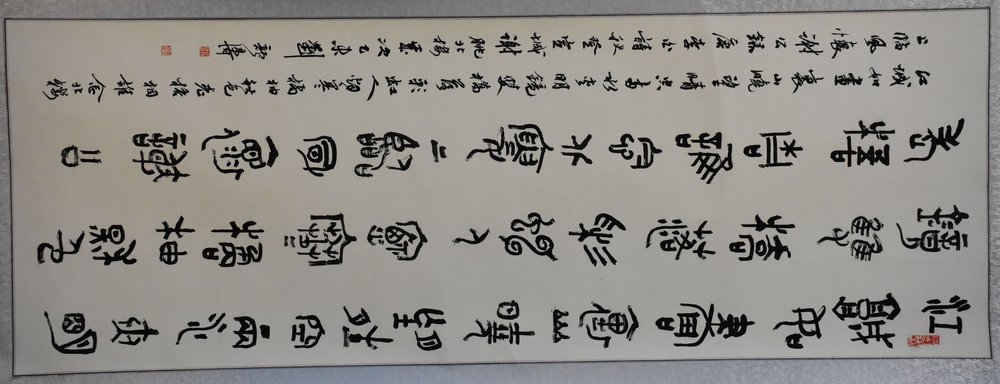 江城如畫裏山曉望晴空兩水夾明
鏡雙橋落彩虹人煙寒橘柚秋色
老梧桐誰念北樓上臨風懷謝公
江城如畫裏山曉望晴空兩水夾明鏡雙橋落彩虹人烟寒橘柚秋色老梧桐誰念北樓
上臨風懷謝公錄唐李白詩秋登宣城謝朓北樓歲次乙未劉